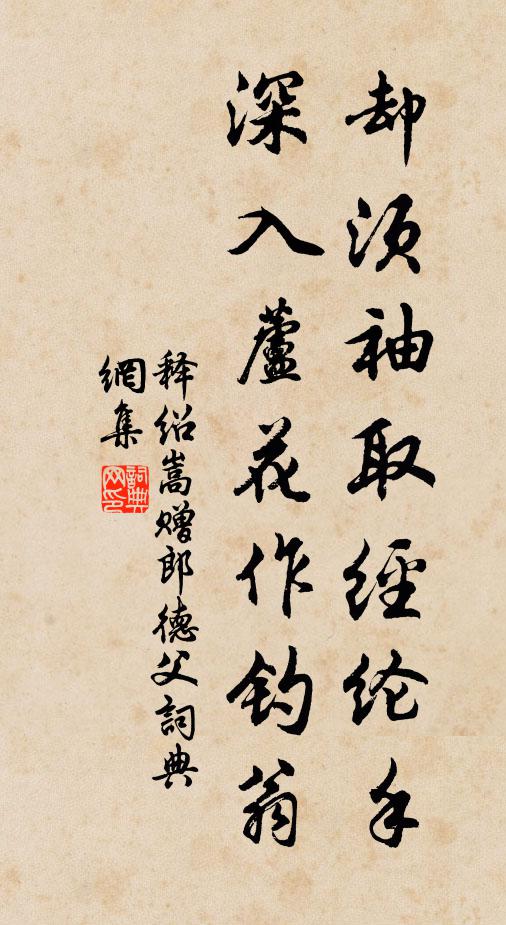 却须袖取經纶手
深入蘆花作钓翁
释绍嵩赠郎德父詞典
網集
詞典
网印